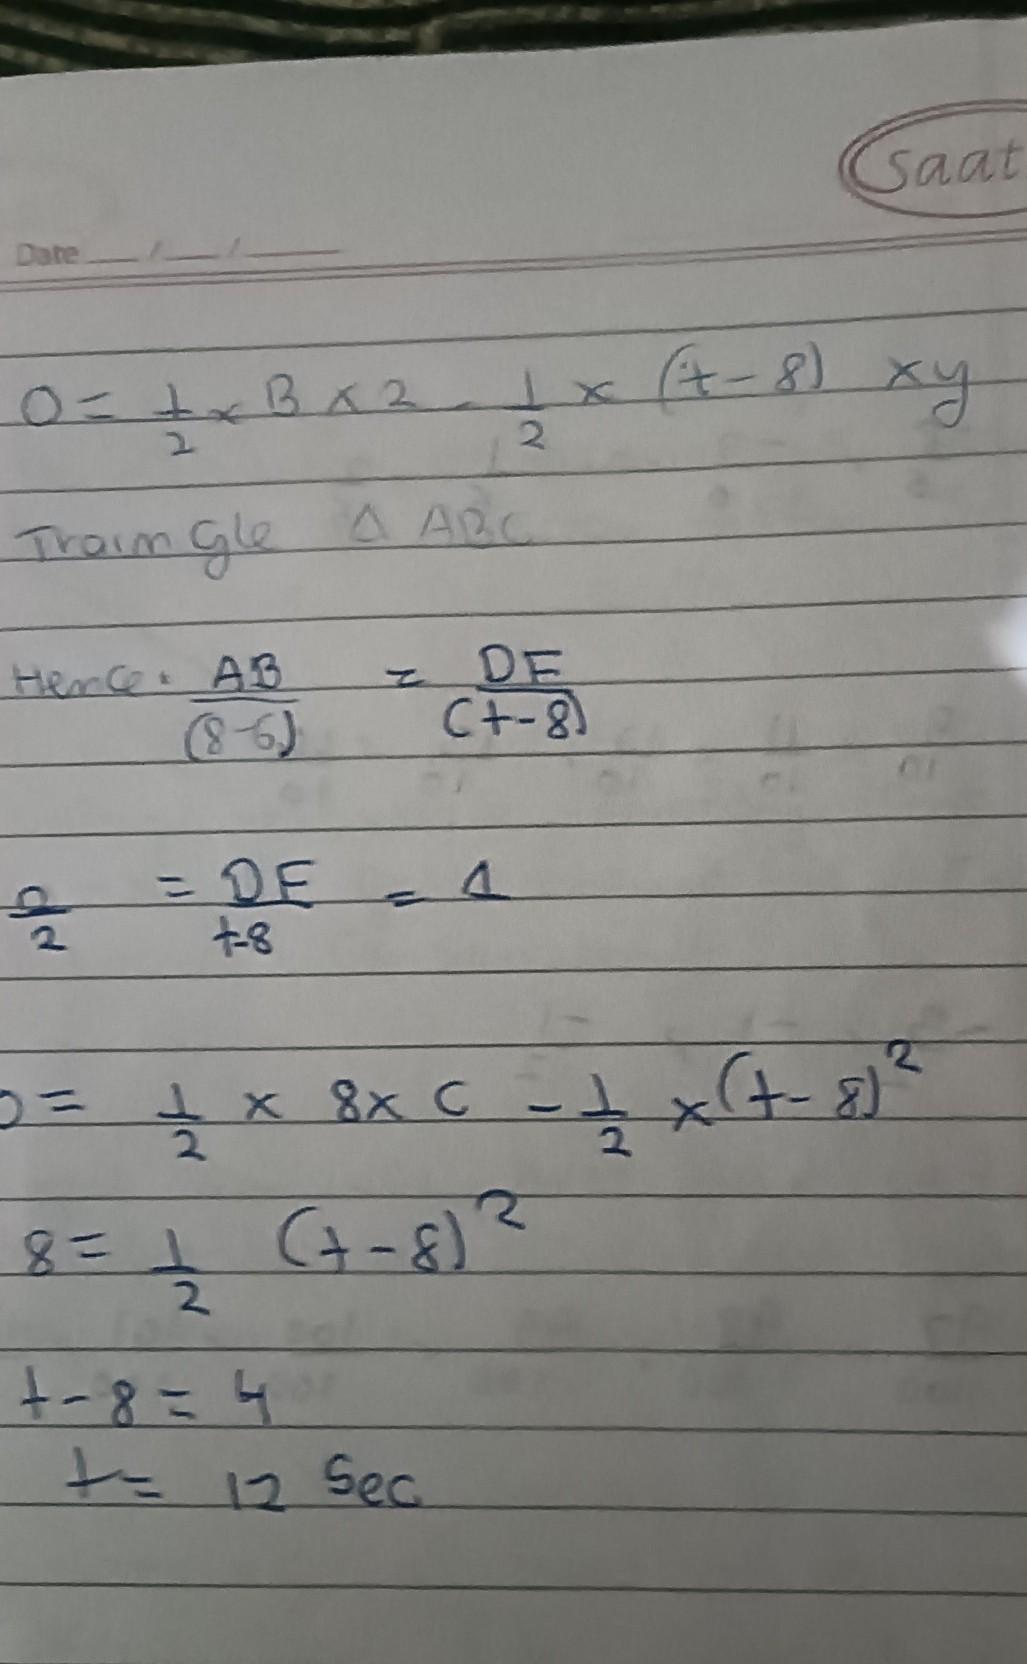 Saat
Date __/__/____
0 = 1/2 × B × 2 - 1/2 × (t - 8) × y
Traimgle Δ ABC
Hence. AB/(8-6) = DE/(t-8)
2/2 = DE/t-8 = 1
0 = 1/2 × 8 × C - 1/2 × (t - 8)²
8 = 1/2 (t - 8)²
t - 8 = 4
t = 12 Sec